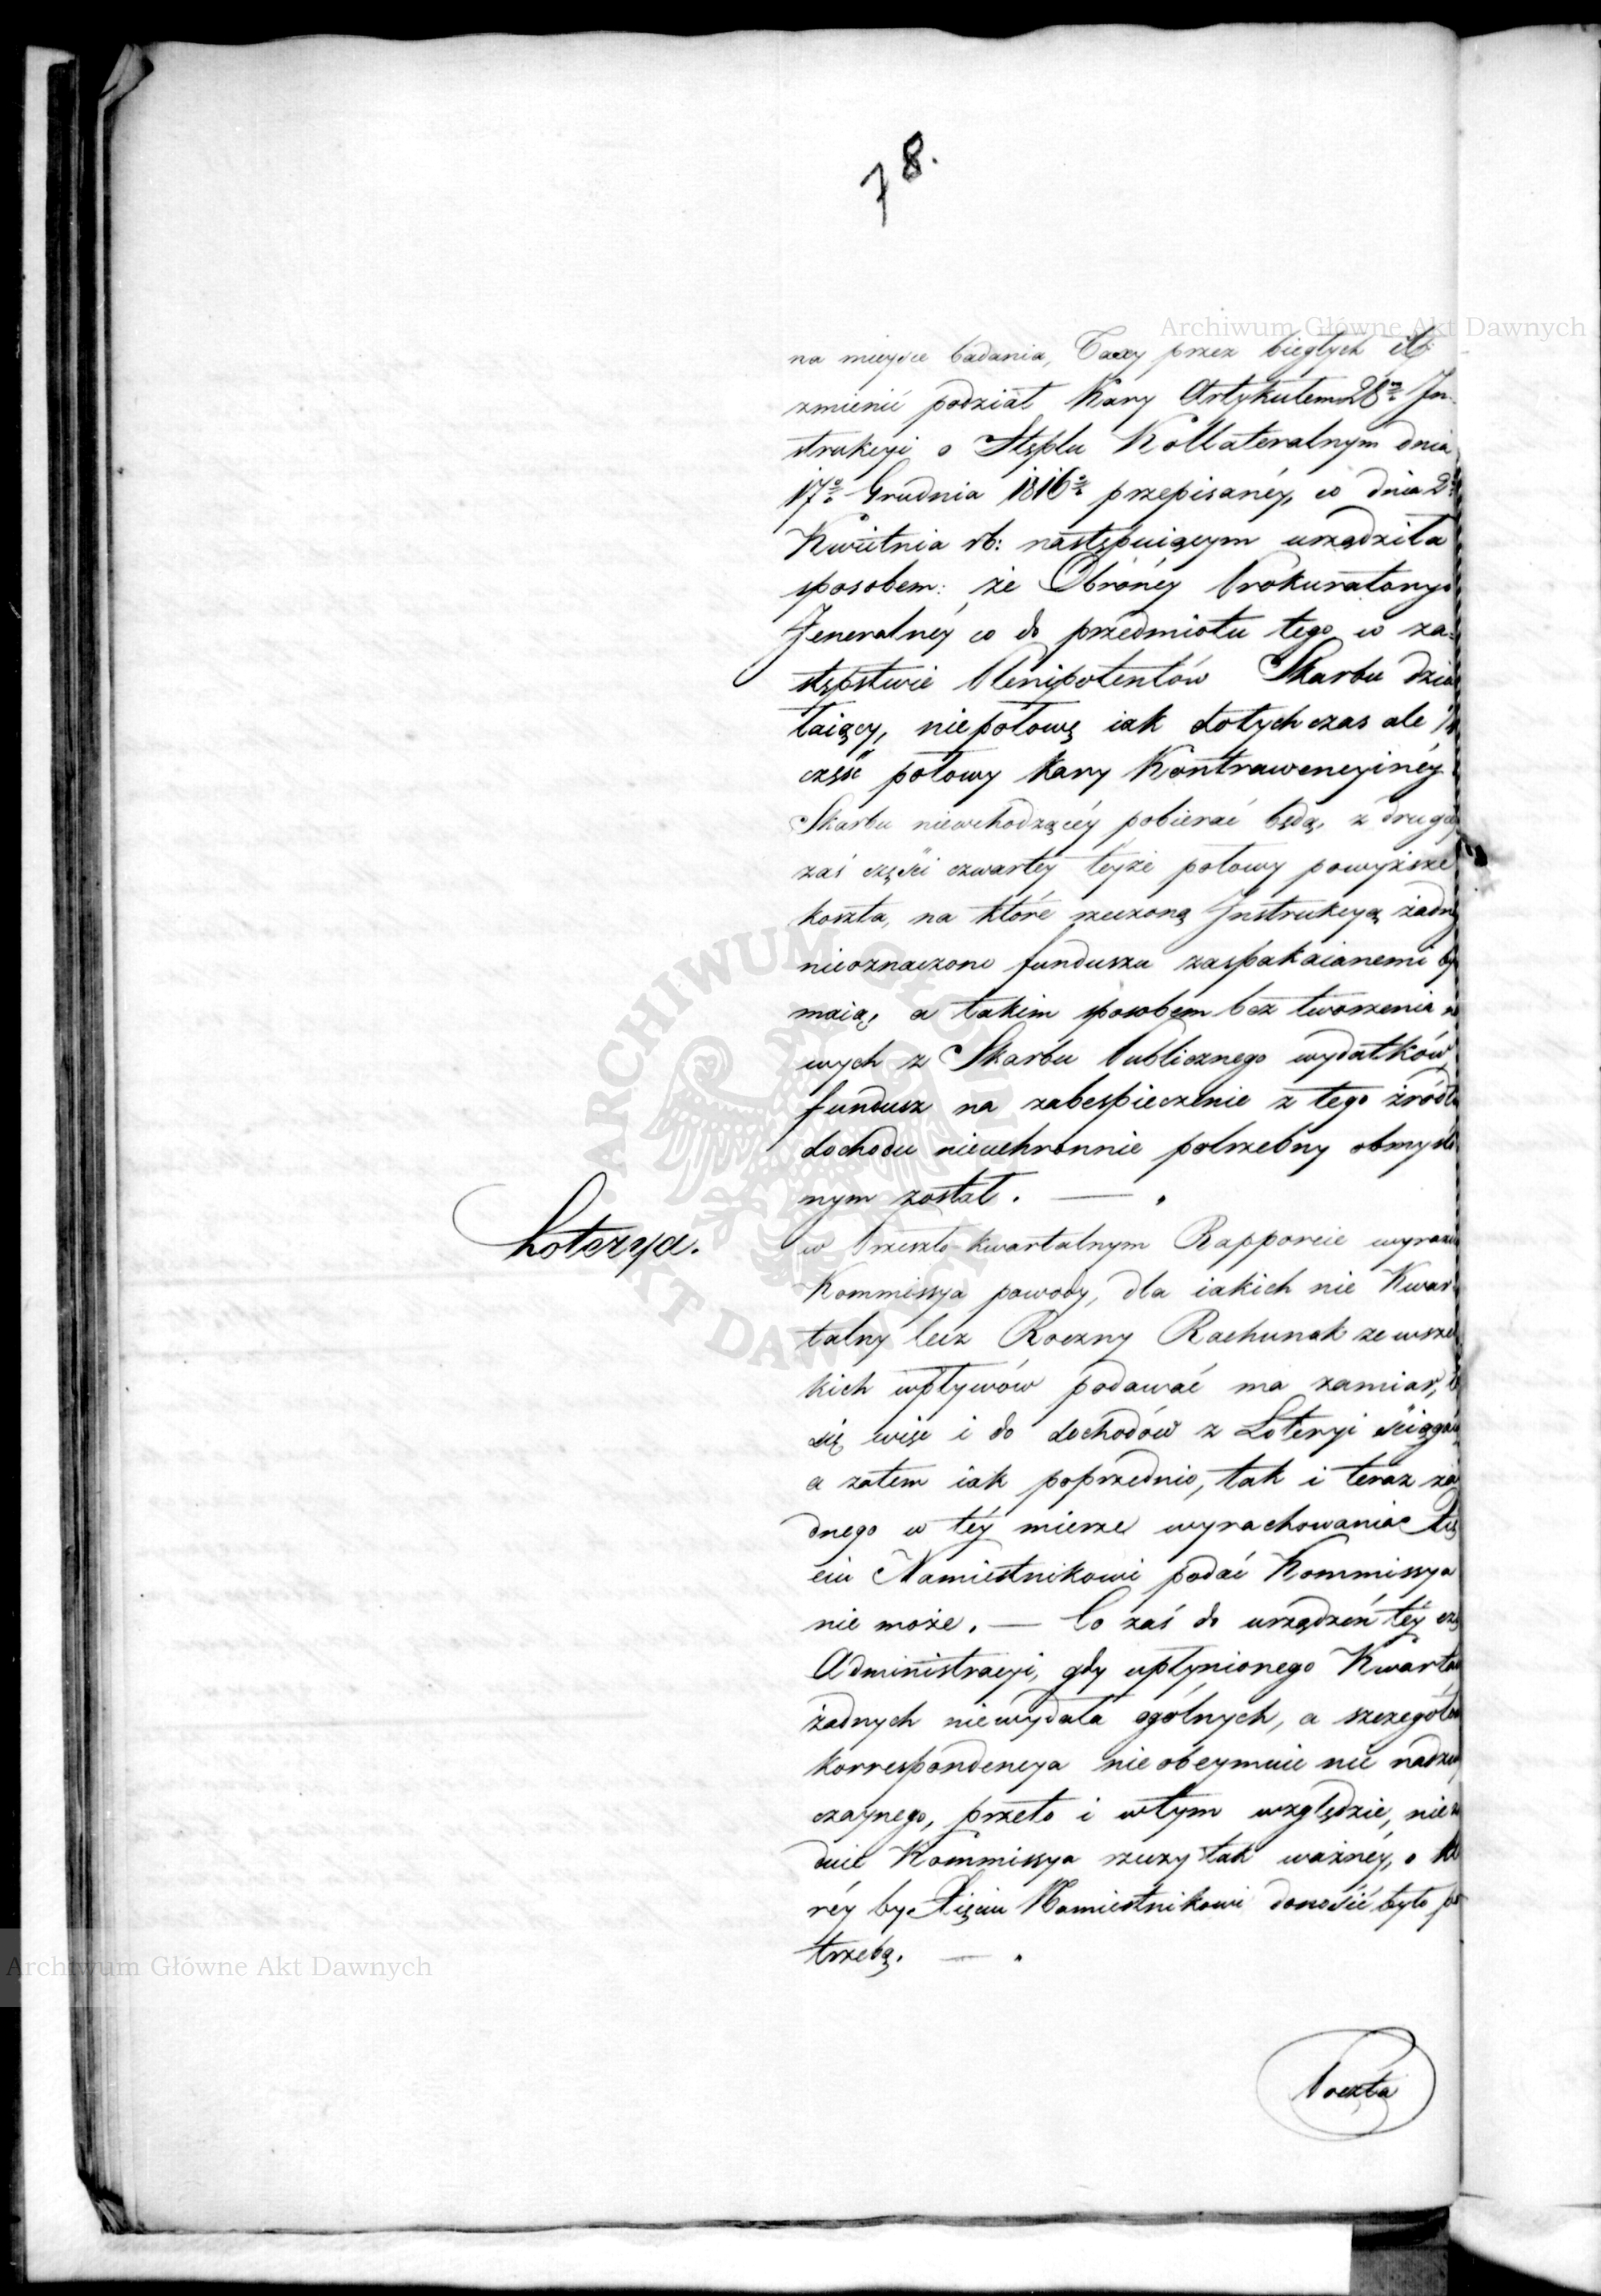 78.
Archiwum Główne Akt Dawnych
na mieysce badania, Taxy przez biegłych itd:
zmienić podział Kary Artykułem 28m In-
strukcyi o Stęplu Kollateralnym dnia
17o Grudnia 1816o przepisanéy, co dnia 2o
Kwietnia rb: następuiącym urządziła
sposobem: że Obrońcy Prokuratoryi
Jeneralnéy co do przedmiotu tego w za-
stępstwie Plenipotentów Skarbu dzia
łaiący, niepołowę iak dotychczas ale
część połowy Kary Kontrawencyinéy
Skarbu niewchodzącéy pobierać będą, z drugiéy
zaś części czwartéy teyże połowy powyższe
koszta, na które rzeczoną Instrukcyą żadn
nieoznaczono funduszu zaspakaianemi by
maią, a takim sposobem bez tworzenia no
wych z Skarbu Publicznego wydatków,
fundusz na zabespieczenie z tego źródła
dochodu nieuchronnie potrzebny obmyślo
nym został. — .
Loterya.
w Przeszło-kwartalnym Rapporcie wyrazi
Kommissya powody, dla iakich nie Kwar
talny lecz Roczny Rachunek ze wszel
kich wpływów podawać ma zamiar,
się więc i do dochodów z Loteryi ściąga
a zatem iak poprzednio, tak i teraz ża
dnego w téy mierze wyrachowania Xię
ciu Namiestnikowi podać Kommissya
nie może. — Co zaś do urządzeń téy czę
Administracyi, gdy upłynionego Kwarta
żadnych niewydała ogólnych, a szczegóło
korrespondencya nie obeymuie nic nadzwy
czaynego, przeto i wtym względzie, nie z
duie Kommissya rzeczy tak ważnéy, o któ
réy by Xięciu Namiestnikowi donosić było po
trzebą. — .
Archiwum Główne Akt Dawnych
Poczta
ARCHIWUM GŁÓWNE AKT DAWNYCH